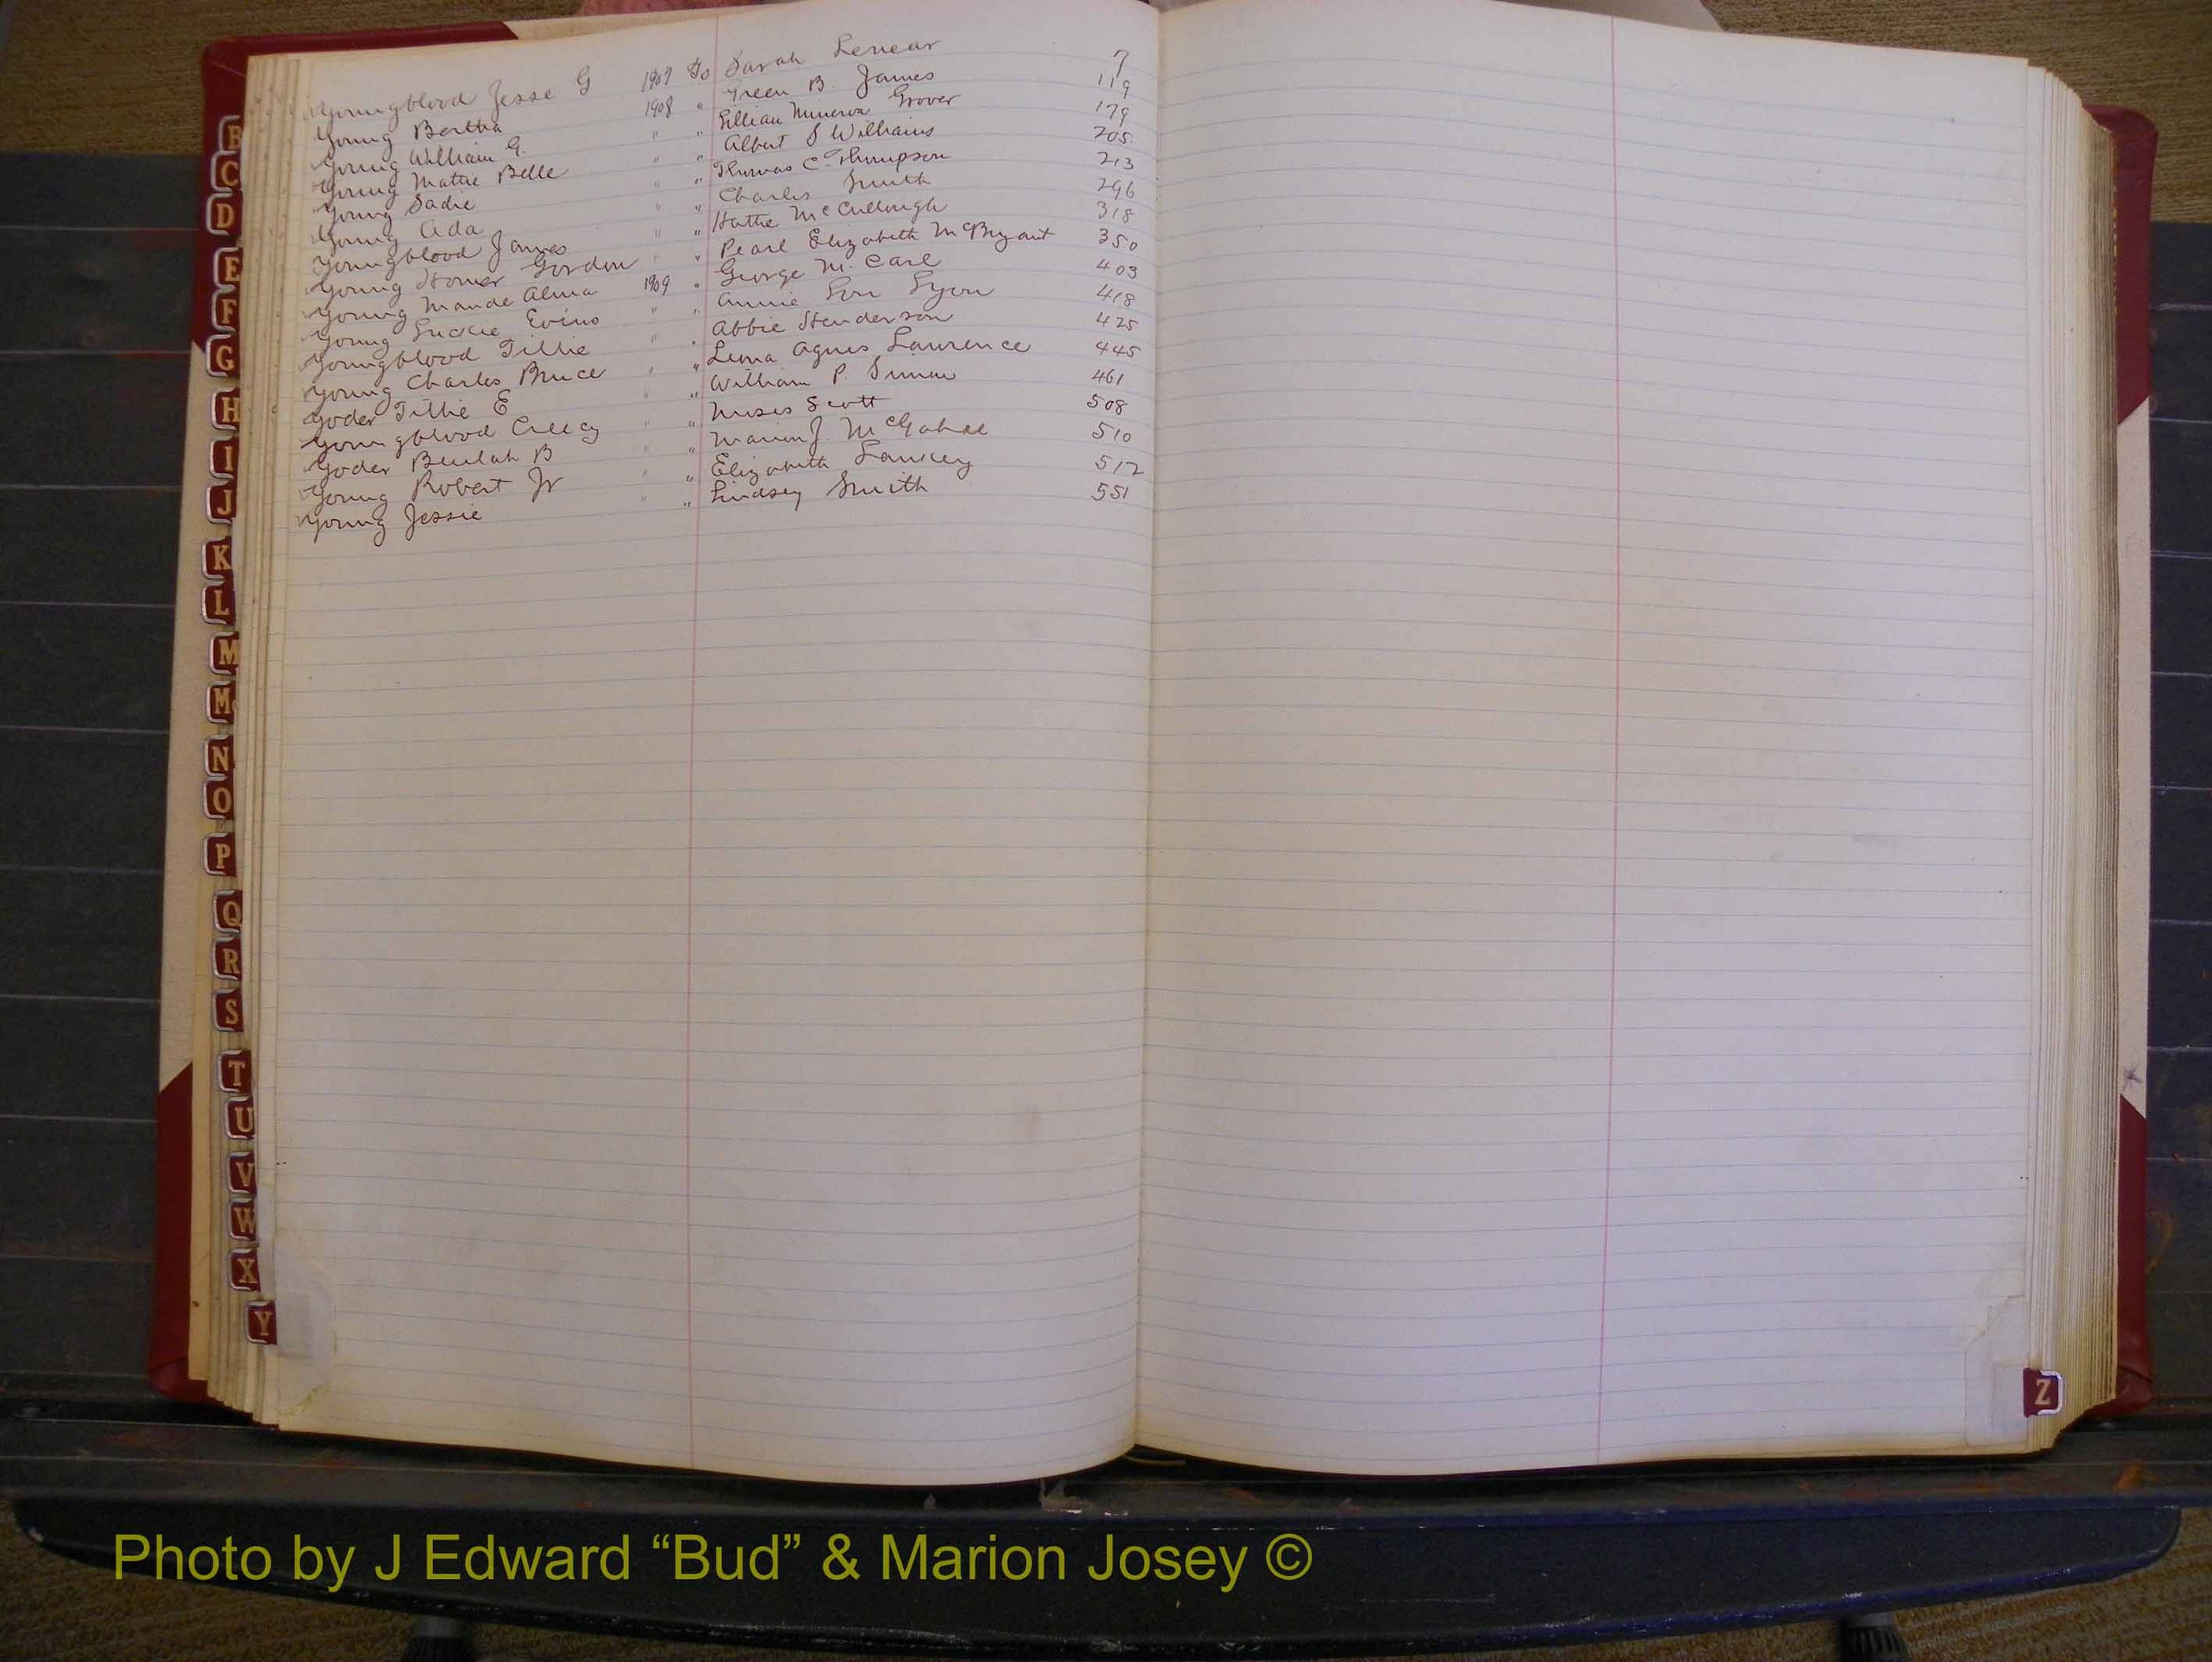 Youngblood Jesse G 1907 to Sarah Lenear 7
Young Bertha 1908 " Green B. James 119
Young William G. " " Lillian Minerva Grover 179
Young Mattie Belle " " Albert S Williams 205
Young Sadie " " Thomas C. Thompson 213
Young Ada " " Charles Smith 296
Youngblood James " " Hattie McCullough 318
Young Homer Gordon " " Pearl Elizabeth McBryant 350
Young Maude Alma 1909 " George M. Carl 403
Young Evins " " Annie Lou Lyon 418
Youngblood Tillie " " Abbie Henderson 425
Young Charles Bruce " " Lena Agnes Lawrence 445
Yoder Tillie E " " William P. 461
Youngblood Creecy " " Moses Scott 508
Yoder Beulah B " " Marion J. 510
Young Robert Jr " " Elizabeth Lankey 512
Young Jessie " " Lindsey Smith 551
B
C
D
E
F
G
H
I
J
K
L
M
Mc
N
O
P
Q
R
S
T
U
V
W
X
Y
Z
Photo by J Edward “Bud” & Marion Josey ©